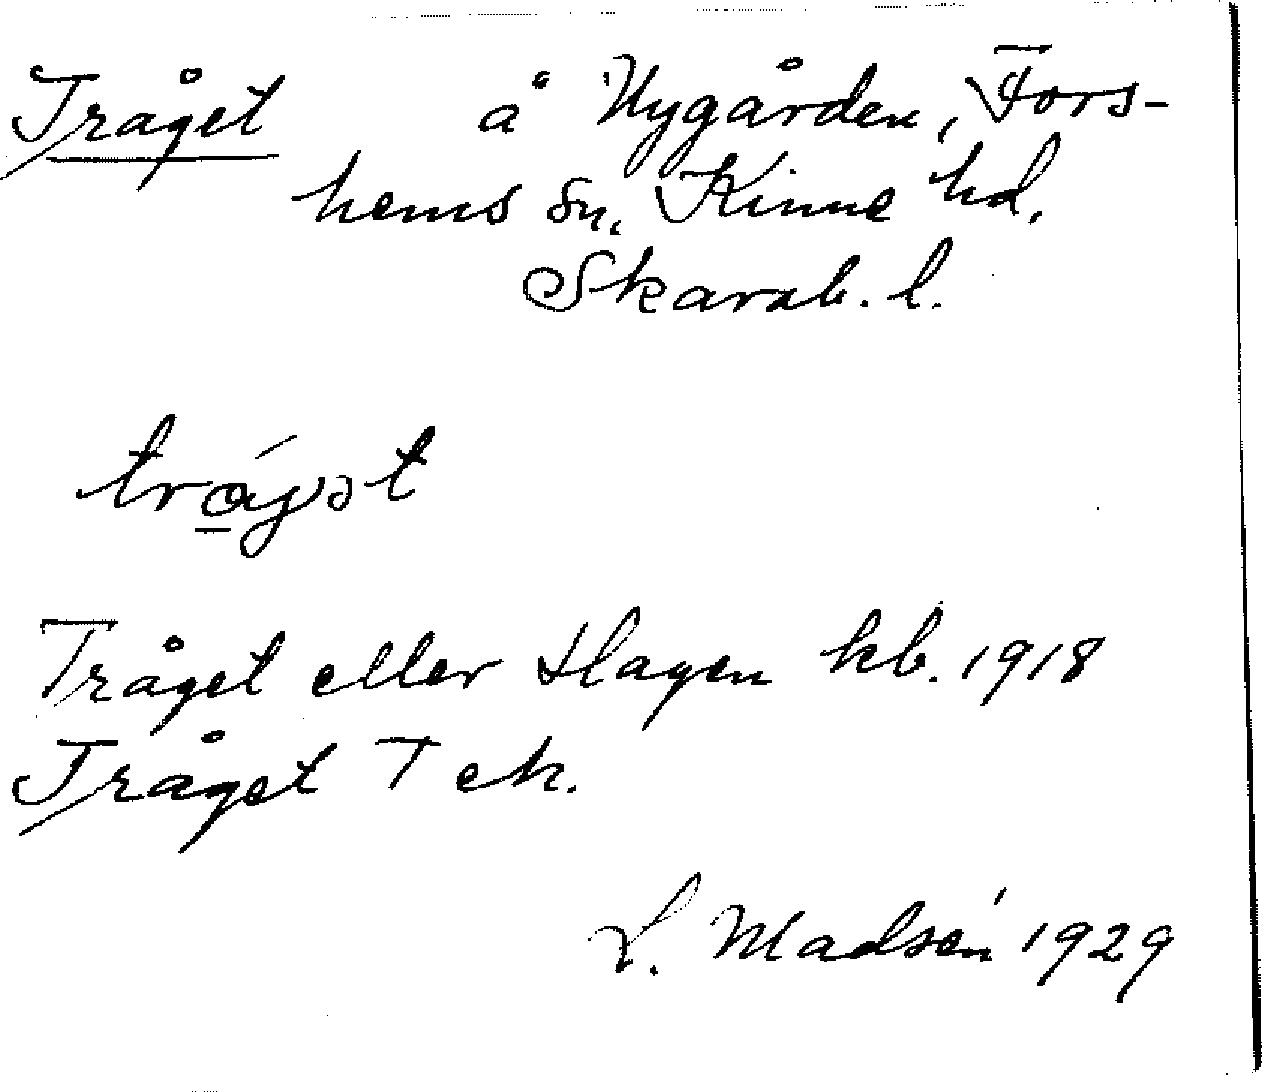 Tråget å Nygården, Fors-
hems sn, Kinne hd,
Skarab. l.
trǫ́gət
Tråget eller Hagen kb. 1918
Tråget T ek.
L. Madsén 1929